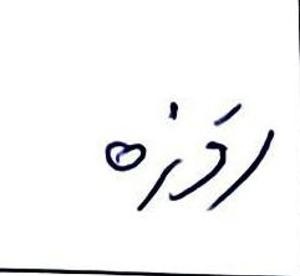 روزه